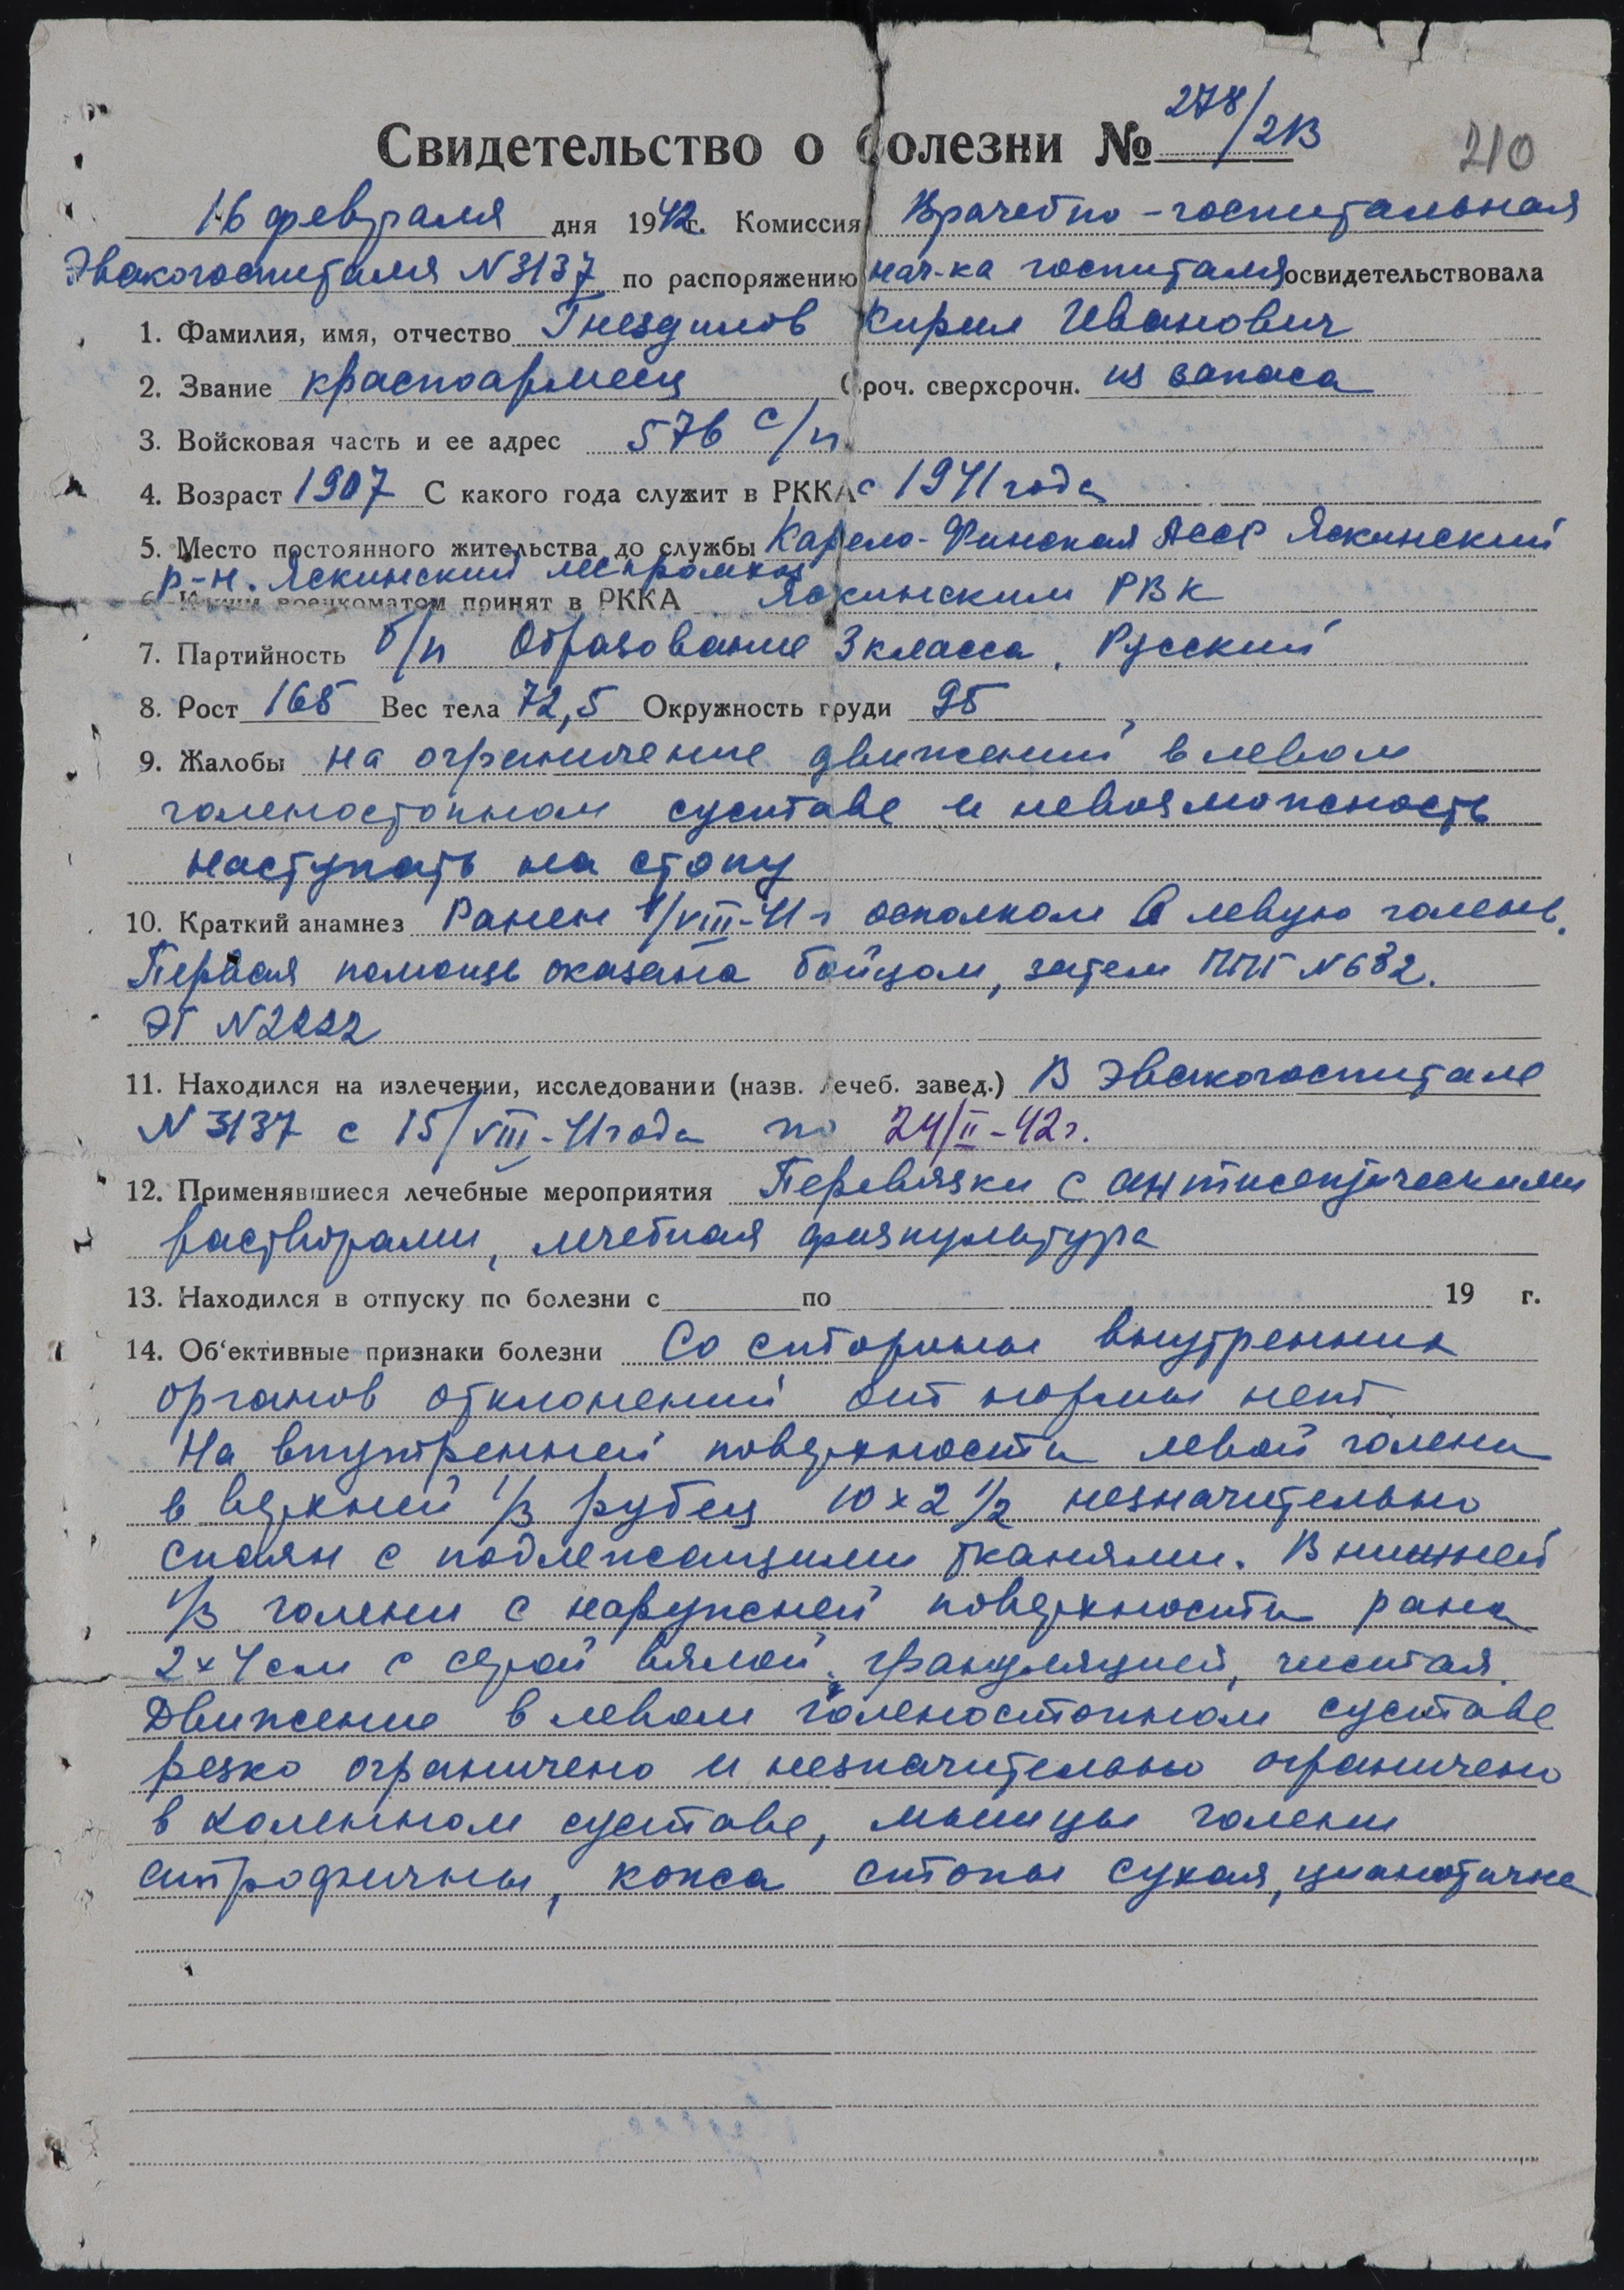 Свидетельство о болезни № 278/2В
210
16 февраля дня 1942 г. Комиссия Врачебно-госпитальная
Эвакогоспиталя N 3137 по распоряжению нач-ка госпиталя освидетельствовала
1. Фамилия, имя, отчество Гнездилов Кирил Иванович
2. Звание красноармеец Сроч. сверхсрочн. из запаса
3. Войсковая часть и ее адрес 576 с/п
4. Возраст 1907 С какого года служит в РККА с 1941 года
5. Место постоянного жительства до службы Карело-Финская АССР Яскинский
р-н. Яскинский леспромхоз
6. Каким военкоматом принят в РККА Яскинским РВК
7. Партийность б/п Образование 3 класса, Русский
8. Рост 165 Вес тела 72,5 Окружность груди 95
9. Жалобы на ограничение движений в левом
голеностопном суставе и невозможность
наступать на стопу
10. Краткий анамнез Ранен /VIII-41 г осколком в левую голень.
Первая помощь оказана бойцом, затем ППГ N 632.
ЭГ N 2222
11. Находился на излечении, исследовании (назв. лечеб. завед.) В Эвакогоспитале
N 3137 с 15/VIII-41 года по 24/II-42 г.
12. Применявшиеся лечебные мероприятия Перевязки с антисептическими
растворами, лечебная физкультура
13. Находился в отпуску по болезни с по 19 г.
14. Об'ективные признаки болезни Со стороны внутренних
органов отклонений от нормы нет
На внутренней поверхности левой голени
в верхней 1/3 рубец 10 х 2 1/2 незначительно
спаян с подлежащими тканями. В нижней
1/3 голени с наружней поверхности рана
2 х 4 см с серой вялой грануляцией, чистая.
Движение в левом голеностопном суставе
резко ограничено и незначительно ограничено
в коленном суставе, мышцы голени
атрофичны, кожа стопы сухая, цианотична